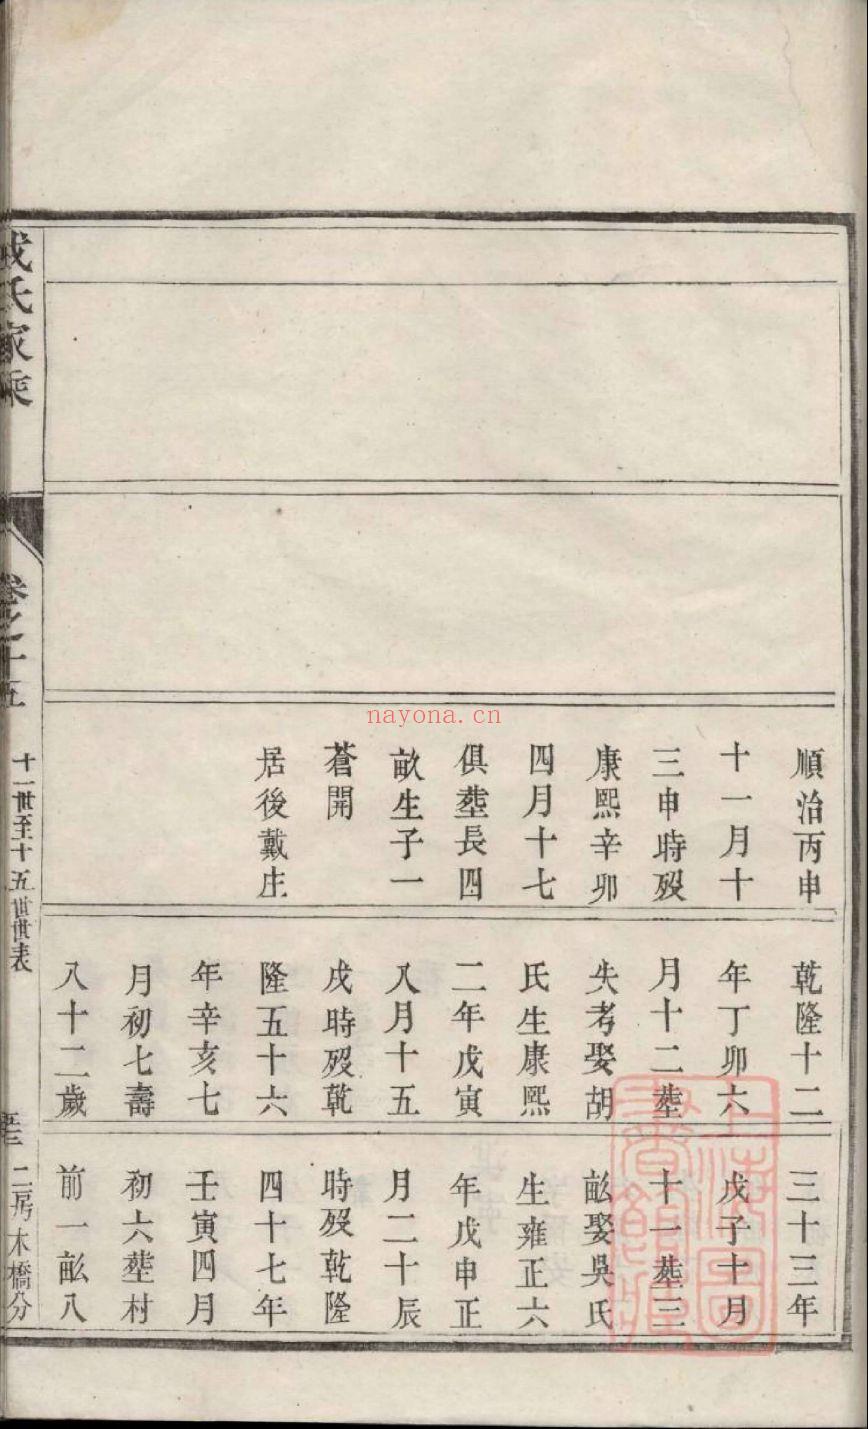 順治丙申
十一月十
三申時歿
康熙辛卯
四月十七
俱塟長四
畝生子一
蒼開
居後戴庄
乾隆十二
年丁卯六
月十二塟
失考娶胡
氏生康熙
二年戊寅
八月十五
戌時歿乾
隆五十六
年辛亥七
月初七壽
八十二歲
三十三年
戊子十月
十一塟三
畝娶吳氏
生雍正六
年戊申正
月二十辰
時歿乾隆
四十七年
壬寅四月
初六塟村
前一畝八
氏家乘
卷之十五
十一世至十五世世表
二房木橋分
上海圖書館藏
nayona.cn